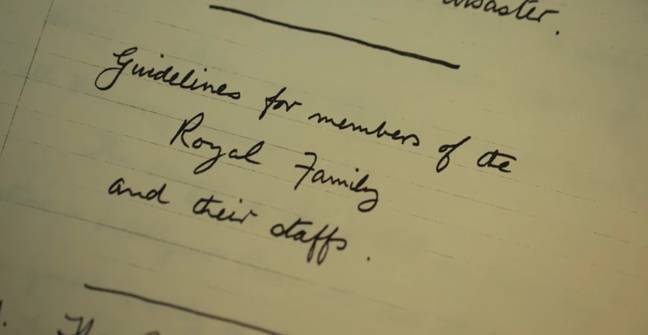 disaster.
Guidelines for members of the
Royal Family
and their staffs.